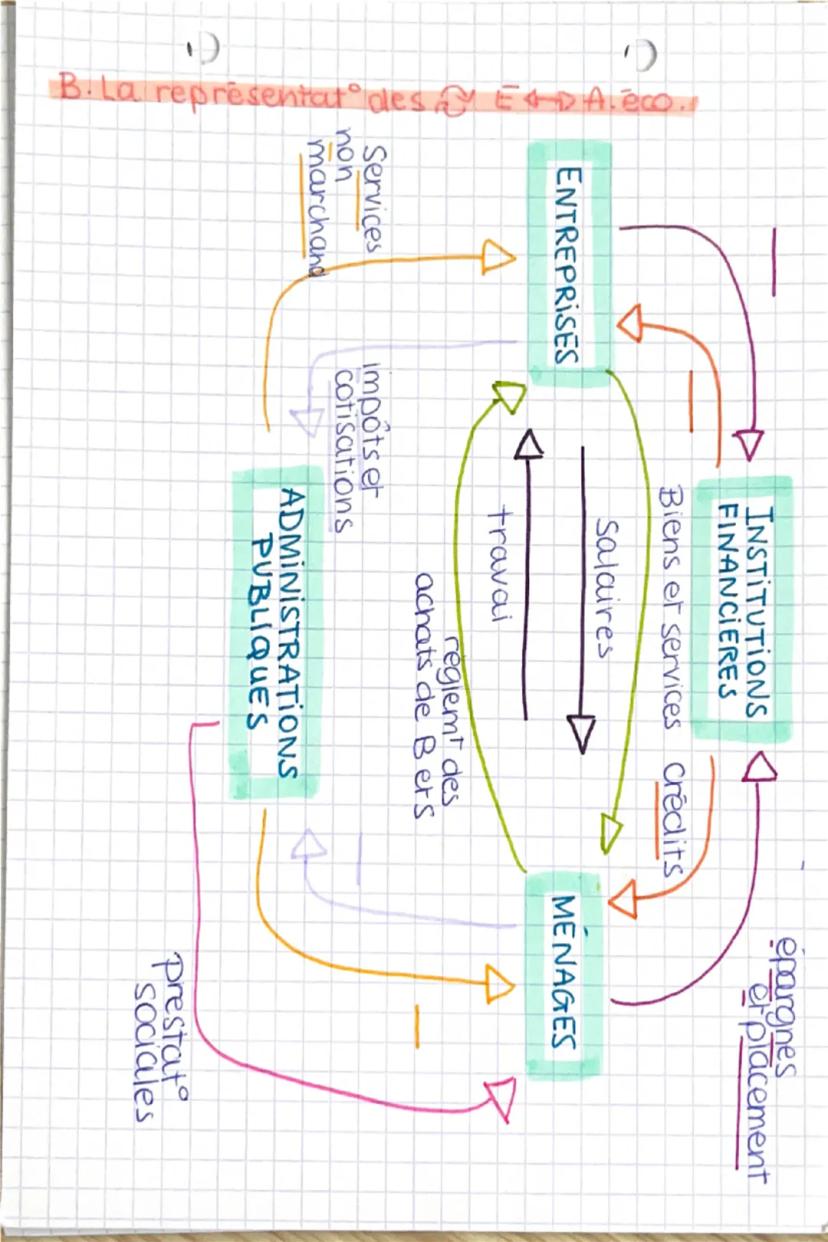 B. La représentat° des É ↔ A. éco.
INSTITUTIONS
FINANCIÈRES
épargnes
et placement
Biens et services
Crédits
ENTREPRISES
Salaires
travai
MÉNAGES
règlemt des
achats de B et S
Services
non
marchand
impôts et
cotisations
ADMINISTRATIONS
PUBLIQUES
prestat°
sociales